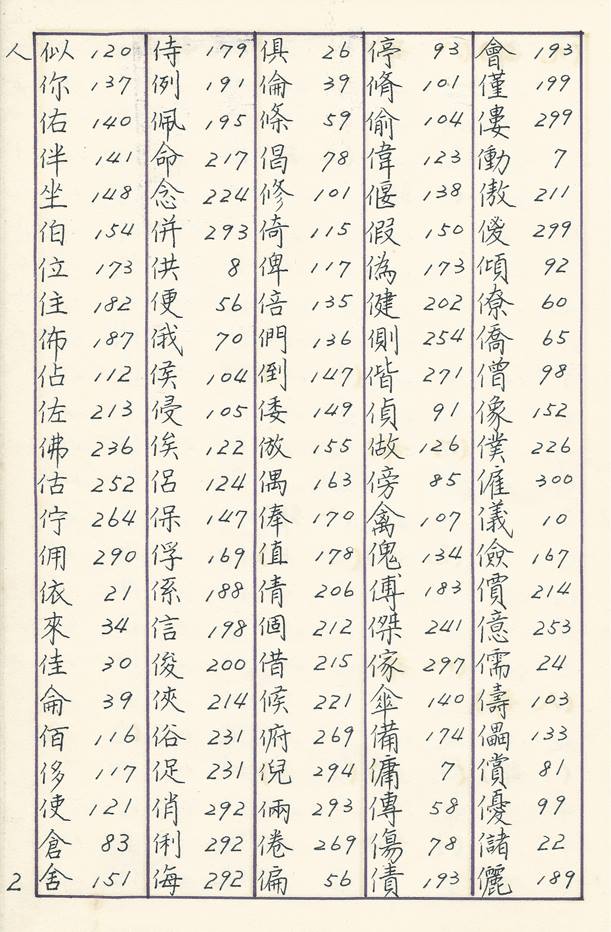 人
似 120
你 137
佑 140
伴 141
坐 148
伯 154
位 173
住 182
佈 187
佔 112
佐 213
佛 236
估 252
佇 264
佣 290
依 21
來 34
佳 30
侖 39
佰 116
侈 117
使 121
倉 83
舍 151
侍 179
例 191
佩 195
命 217
念 224
併 293
供 8
便 56
俄 70
侯 104
侵 105
俟 122
侶 124
保 147
俘 169
係 188
信 198
俊 200
俠 214
俗 231
促 231
俏 292
俐 292
侮 292
俱 26
倫 39
條 59
倡 78
修 101
倚 115
俾 117
倍 135
們 136
倒 147
倭 149
倣 155
偶 163
俸 170
值 178
倩 206
個 212
借 215
候 221
俯 269
倪 294
倆 293
倦 269
偏 56
停 93
脩 101
偷 104
偉 123
偃 138
假 150
偽 173
健 202
側 254
偕 271
偵 91
做 126
傍 85
禽 107
傀 134
傅 183
傑 241
傢 297
傘 140
備 174
傭 7
傳 58
傷 78
債 193
會 193
僅 199
僂 299
働 7
傲 211
傻 299
傾 92
僚 60
僑 65
僧 98
像 152
僕 226
僱 300
儀 10
儉 167
價 214
億 253
儒 24
儔 103
儡 133
償 81
優 99
儲 22
儷 189
2